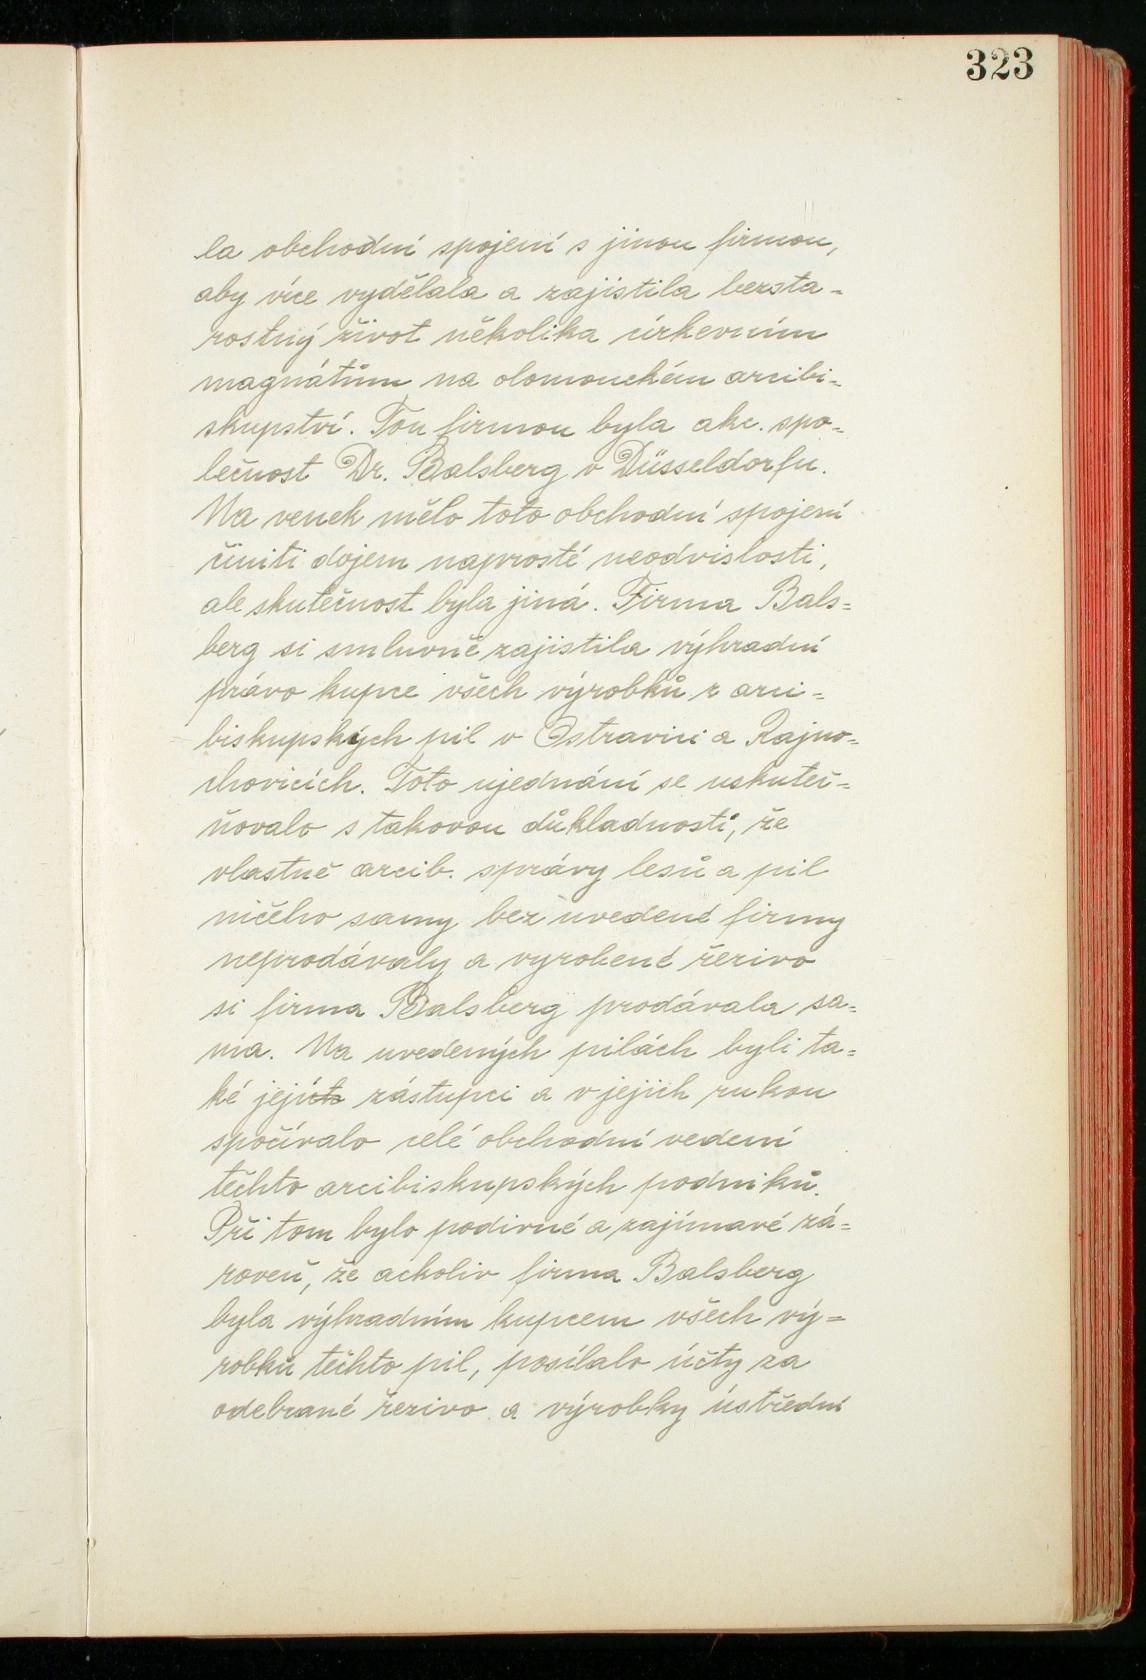 323
la obchodní spojení s jinou firmou,
aby více vydělala a zajistila bezsta-
rostný život několika církevním
magnátům na olomouckém arcibi-
skupství. Tou firmou byla akc. spo-
lečnost Dr. Balsberg v Düsseldorfu.
Na venek mělo toto obchodní spojení
činiti dojem naprosté neodvislosti,
ale skutečnost byla jiná. Firma Bals=
berg si smluvně zajistila výhradní
právo kupce všech výrobků z arci-
biskupských pil v Ostravici a Rajno-
chovicích. Toto ujednání se uskuteč-
ňovalo s takovou důkladností, že
vlastně arcib. správy lesů a pil
ničeho samy bez uvedené firmy
neprodávaly a vyrobené řezivo
si firma Balsberg prodávala sa-
ma. Na uvedených pilách byli ta-
ké její zástupci a v jejich rukou
spočívalo celé obchodní vedení
těchto arcibiskupských podniků.
Při tom bylo podivné a zajímavé zá-
roveň, že ackoliv firma Balsberg
byla výhradním kupcem všech vý-
robků těchto pil, posílalo účty za
odebrané řezivo a výrobky ústřední